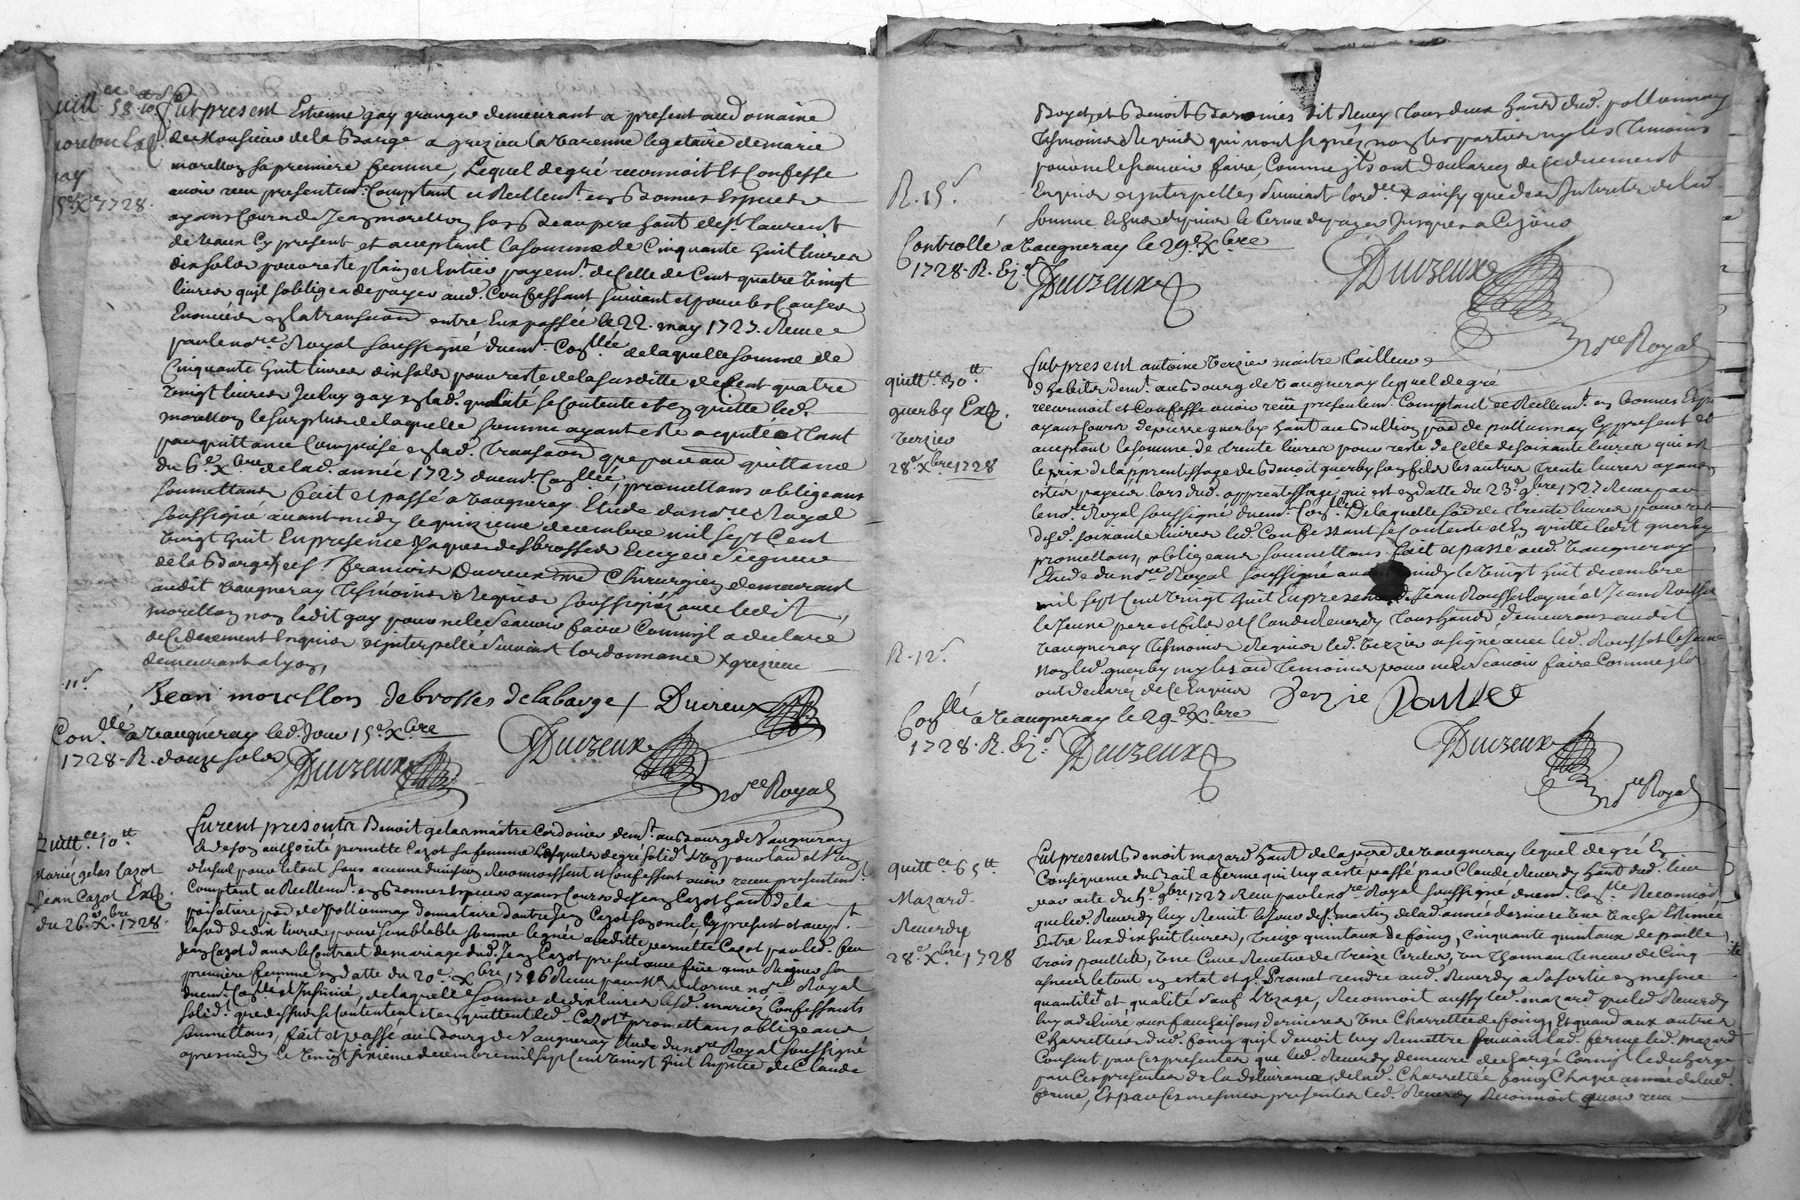 quitt.ce 58.tt 10.s
morellon Exp.
gay
15.e Xbre 1728.
Fut present Etienne gay granger demeurant a present au domaine
de Monsieur de la Barge a grezieu la varenne legataire de marie
morellon sa premiere femme, Lequel de gré reconnoit Et Confesse
avoir reçu presentem.t Comptant et Reellem.t en Bonnes Especes
ayans Cours de Jean morellon son Beaupere hant de s.t laurent
de vaux Cy present et acceptant la somme de Cinquante huit livres
dix solds pour reste plain et Entier payem.t de Celle de Cent quatre vingt
livres qu'il s'obligea de payer aud. Confessant suivant et pour les Causes
Enoncées en la transaction entre Eux passée le 22. may 1727. Receue
par le no.re Royal soussigné duem.t Con.llée de laquelle somme de
Cinquante huit livres dix solds pour reste de la susditte de Cent quatre
vingt livres Iceluy gay en lad. qualité se Contente et en quitte led.
morellon le surplus de laquelle somme ayant esté acquitée tant
par quittance Comprise en lad. transaon que par au quittance
du 6.e Xbre de lad. année 1727 duem.t Con.llée, promettans obligeans
soumettans fait et passé a vaugneray Etude du no.re Royal
soussigné avant midy le quinzieme decembre mil sept Cent
vingt huit En presence Jaques desbrosses Ecuyer seigneur
de la Barge et s.r francois Duvreux me Chirurgien demeurant
audit vaugneray Tesmoins Requis soussignés avec ledit
morellon non ledit gay pour ne le sçavoir faire Comm'il a declaré
de Ce duement Enquis et interpellé suivant l'ordonnance x grezieu
demeurant a lyon,
11.s
Jean morellon debrosses delabarge + Duvreux
Con.llé a vaugneray led. Jour 15.e Xbre
1728. R. douze solds
Duvzeux
Duvzeux
No.re Royal
Quitt.ce 10.tt
Mariéz gelas Cazot
Jean Cazot Exp.
du 26.e X.bre 1728.
Furent presents Benoit gelas maitre Cordonier dem.t au Bourg de Vaugneray
et de son authorité permette Cazot sa femme Lesquels de gré solid.t L'un pour l'au.e et L'un
d'Eux seul pour le tout sans aucune division Reconnoissent et Confessent avoir receu presentem.t
Comptant et Reellem.t en Bonnes Especes ayans Cours de Jean Cazot hant de la
poisatiere par. de Pollionnay donnataire d'autre Jean Cazot son oncle, Cy present et accept.t
la so.e de dix livres pour semblable somme leguée a laditte permette Cazot par led. feu
Jean Cazot dans le Contrat de mariage dud. Jean Cazot present avec feüe anne Reynier son
premiere femme en datte du 20.e Xbre 1716 Receu par M.e delorme no.re Royal
duem.t Con.llé et Insinüé, de laquelle somme de dix livres lesd. mariéz Confessants
solid.t que dessus se Contentent et en quittent led. Cazot promettans obligeans
soumettans, fait et passé au Bourg de Vaugneray Etude du no.re Royal soussigné
apres midy le vingt sixieme decembre mil sept Cent vingt huit En presence de Claude
et Benoit dit Revey tous deux hans dud. pollionnay
Tesmoins Requis qui n'ont signéz non les parties ny les Temoins
pour ne le sçavoir faire, Comme ils ont Declaréz de Ce duement
Enquis et interpellés suivant l'ord.ce
R. 15.s
Controllé a Vaugneray le 29.e Xbre
1728. R. Ej.s Duvzeux
Duvzeux
No.re Royal
quitt.ce 30.tt
guerby Exp.
verzier
28.e Xbre 1728
Fut present antoine verzier maitre tailleur
d'habits dem.t au Bourg de Vaugneray lequel de gré
reconnoit et Confesse avoir reçü presentem.t Comptant et Reellem.t en bonnes Esp.
ayans cours de pierre guerby hant au Bullion par. de pollionnay Cy present et
acceptant la somme de trente livres pour reste de Celle de soixante livres qui est
le prix de l'apprentissage de Benoit guerby son fils les autres trente livres ayans
esté payées lors dud. apprentissage qui est en datte du 23.e 9bre 1727 Receu par
le no.re Royal soussigné duem.t Con.llé De laquelle so.e de trente livres pour reste
desd. soixante livres led. Confessant se Contente et En quitte ledit guerby
promettans, obligeans soumettans fait et passé aud. Vaugneray
Etude du no.re Royal soussigné midy le vingt huit decembre
mil sept Cent vingt huit En presence de Jean Rousset layné et Jean Rousset
le Jeune pere et fils et Claude Reverdy tous hans demeurans audit
Vaugneray Tesmoins Requis led. verzier a signé avec led. Rousset le Jeune
non led. guerby ny les au.e Temoins pour ne le sçavoir faire Comme ils
ont declaréz de Ce Enquis
R. 12.s
Verzie Rousset
Con.llé a Vaugneray le 29.e Xbre
1728. R. Ej.s Duvzeux
Duvzeux
No.re Royal
quitt.ce 65.tt
Mazard
Reverdy
28.e X.bre 1728
Fut present Benoit mazard hant de la par. de vaugneray lequel de gré En
Consequence du Bail a ferme qui luy a esté passé par Claude Reverdy hant dud. lieu
par acte du 9bre 1727 Receu par le no.re Royal soussigné duem.t Con.llé Reconnoit
que led. Reverdy luy Remit le jour de s.t martin de lad. année derniere une vache Estimée
Entre Eux dix huit livres, treize quintaux de foing, cinquante quintaux de paille
trois poulles, une Cuve Recevue de treize Cercles, un Thonneau tenant de Cinq
asnées le tout en estat et q'il Promet rendre aud. Reverdy a sa sortie en mesme
quantité et qualité sauf L'uzage, Reconnoit aussy led. mazard que led. Reverdy
luy a delivré aux fauchaisons dernieres une Charrettée de foing, Et quand aux autres
Charrettées dud. foing qu'il devoit luy Remettre suivant lad. ferme led. mazard
Consent par Ces presentes que led. Reverdy demeure dechargé Comm'il le decharge
par Ces presentes de la delivrance de lad. Charrettée foing Chaque année de lad.
ferme, Et par Ces mesmes presentes led. Reverdy Reconnoit avoir receu